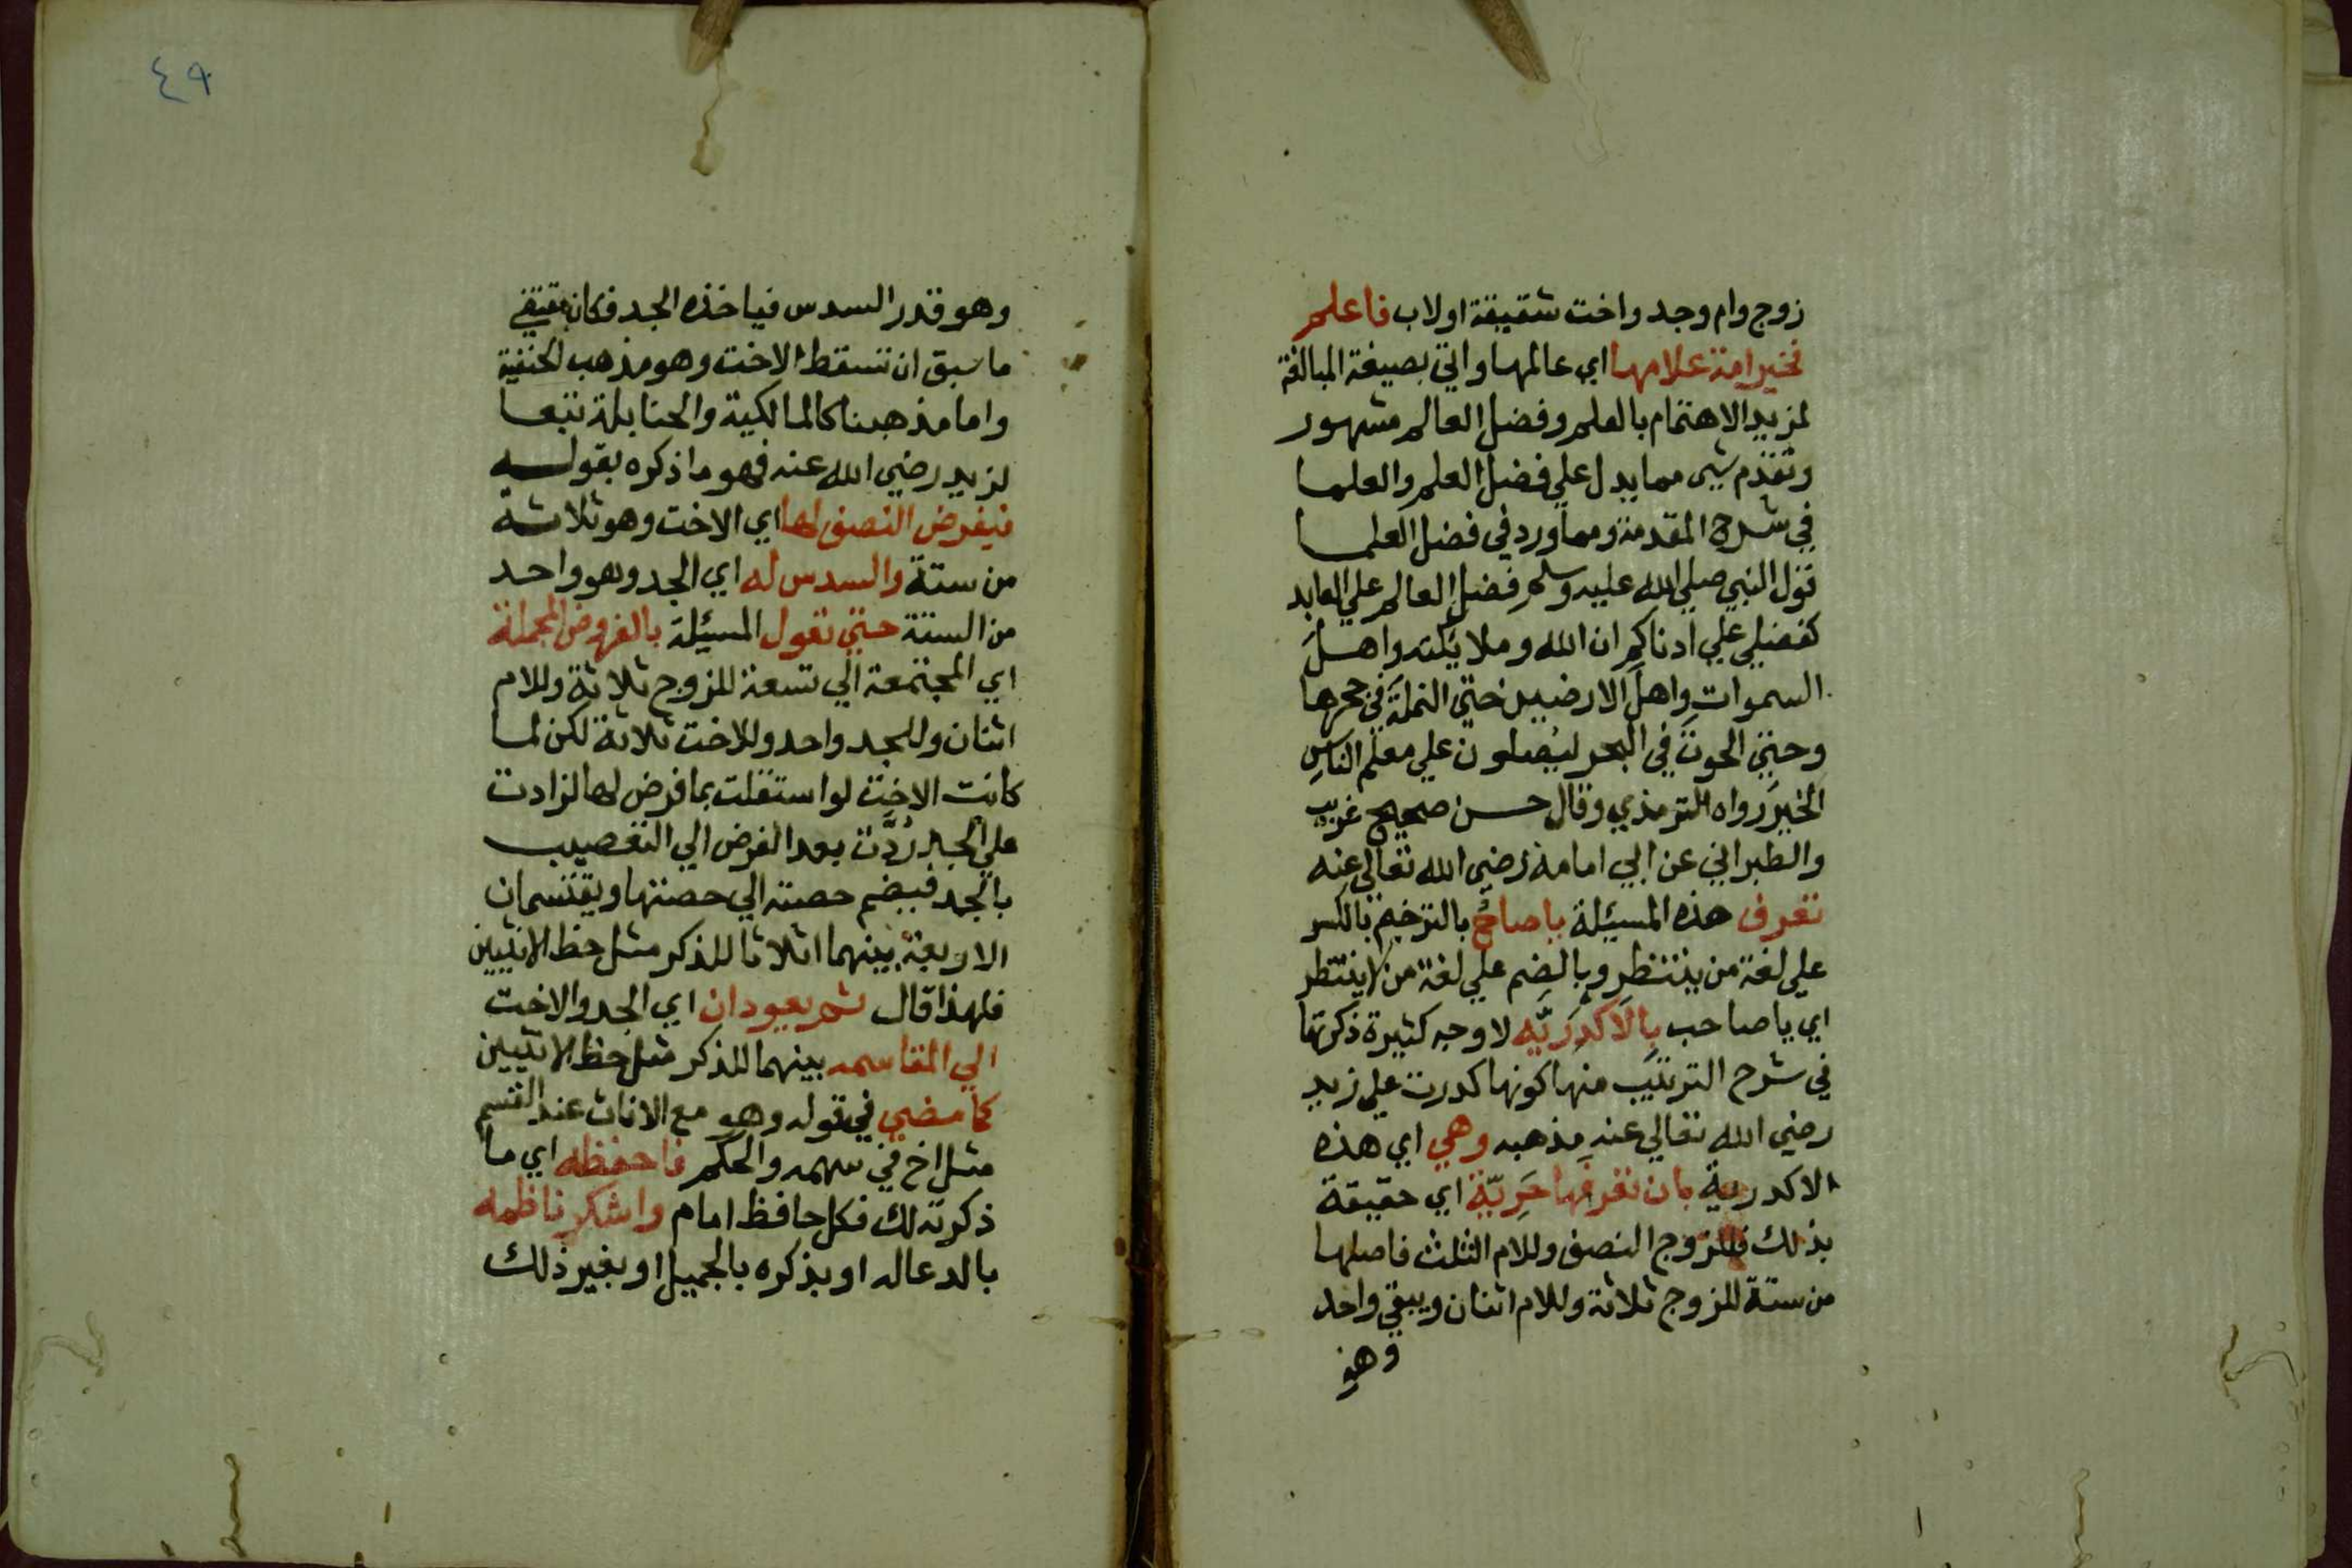 زوج وام وجد واخت شقيقة اولاب فاعلم
فخير امة علامها اي عالمها واتي بصيغة المبالغة
لمزيد الاهتمام بالعلم وفضل العالم مشهور
وتقدم شيء مما يدل علي فضل العلم والعلما
في شرح المقدمة ومما ورد في فضل العلما
قول النبي صلي الله عليه وسلم فضل العالم علي العابد
كفضلي علي ادناكم ان الله وملايكته واهل
السموات واهل الارضين حتي النملة في جحرها
وحتي الحوت في البحر ليصلون علي معلم الناس
الخير رواه الترمذي وقال حسن صحيح غريب
والطبراني عن ابي امامة رضي الله تعالي عنه
تعرف هذه المسئلة ياصاح بالترخيم بالكسر
علي لغة من ينتظر وبالضم علي لغة من لاينتظر
اي ياصاحب بِالَاكْدَريَّه لاوجه كثيرة ذكرتها
في شرح الترتيب منها كونها كدرت علي زيد
رضي الله تعالي عنه مذهبه وهي اي هذه
الاكدرية بان تعرفها حَرِيَّة اي حقيقة
بذلك فللزوج النصف وللام الثلث فاصلها
من ستة للزوج ثلاثة وللام اثنان ويبقي واحد
وهو
٤٩
وهو قدر السدس فياخذه الجد فكان مقتضي
ماسبق ان تسقط الاخت وهو مذهب الحنفية
واما مذهبنا كالمالكية والحنابلة تبعا
لزيد رضي الله عنه فهو ما ذكره بقوله
فيفرض النصف لها اي الاخت وهو ثلاثة
من ستة والسدس له اي الجد وهو واحد
من الستة حتي تعول المسئلة بالفروض المجملة
اي المجتمعة الي تسعة للزوج ثلاثة وللام
اثنان وللجد واحد وللاخت ثلاثة لكن لما
كانت الاخت لو استقلت بما فرض لها لزادت
علي الجد رُدَّت بعد الفرض الي التعصيب
بالجد فيضم حصته الي حصتها ويقتسمان
الاربعة بينهما اثلاثا للذكر مثل حظ الانثيين
فلهذا قال ثم يعودان اي الجد والاخت
الي المقاسمه بينهما للذكر مثل حظ الانثيين
كما مضي في قوله وهو مع الاناث عند القسم
مثل اخ في سهمه والحكم فاحفظه اي ما
ذكرته لك فكل حافظ امام واشكر ناظمه
بالدعاله او بذكره بالجميل او بغير ذلك